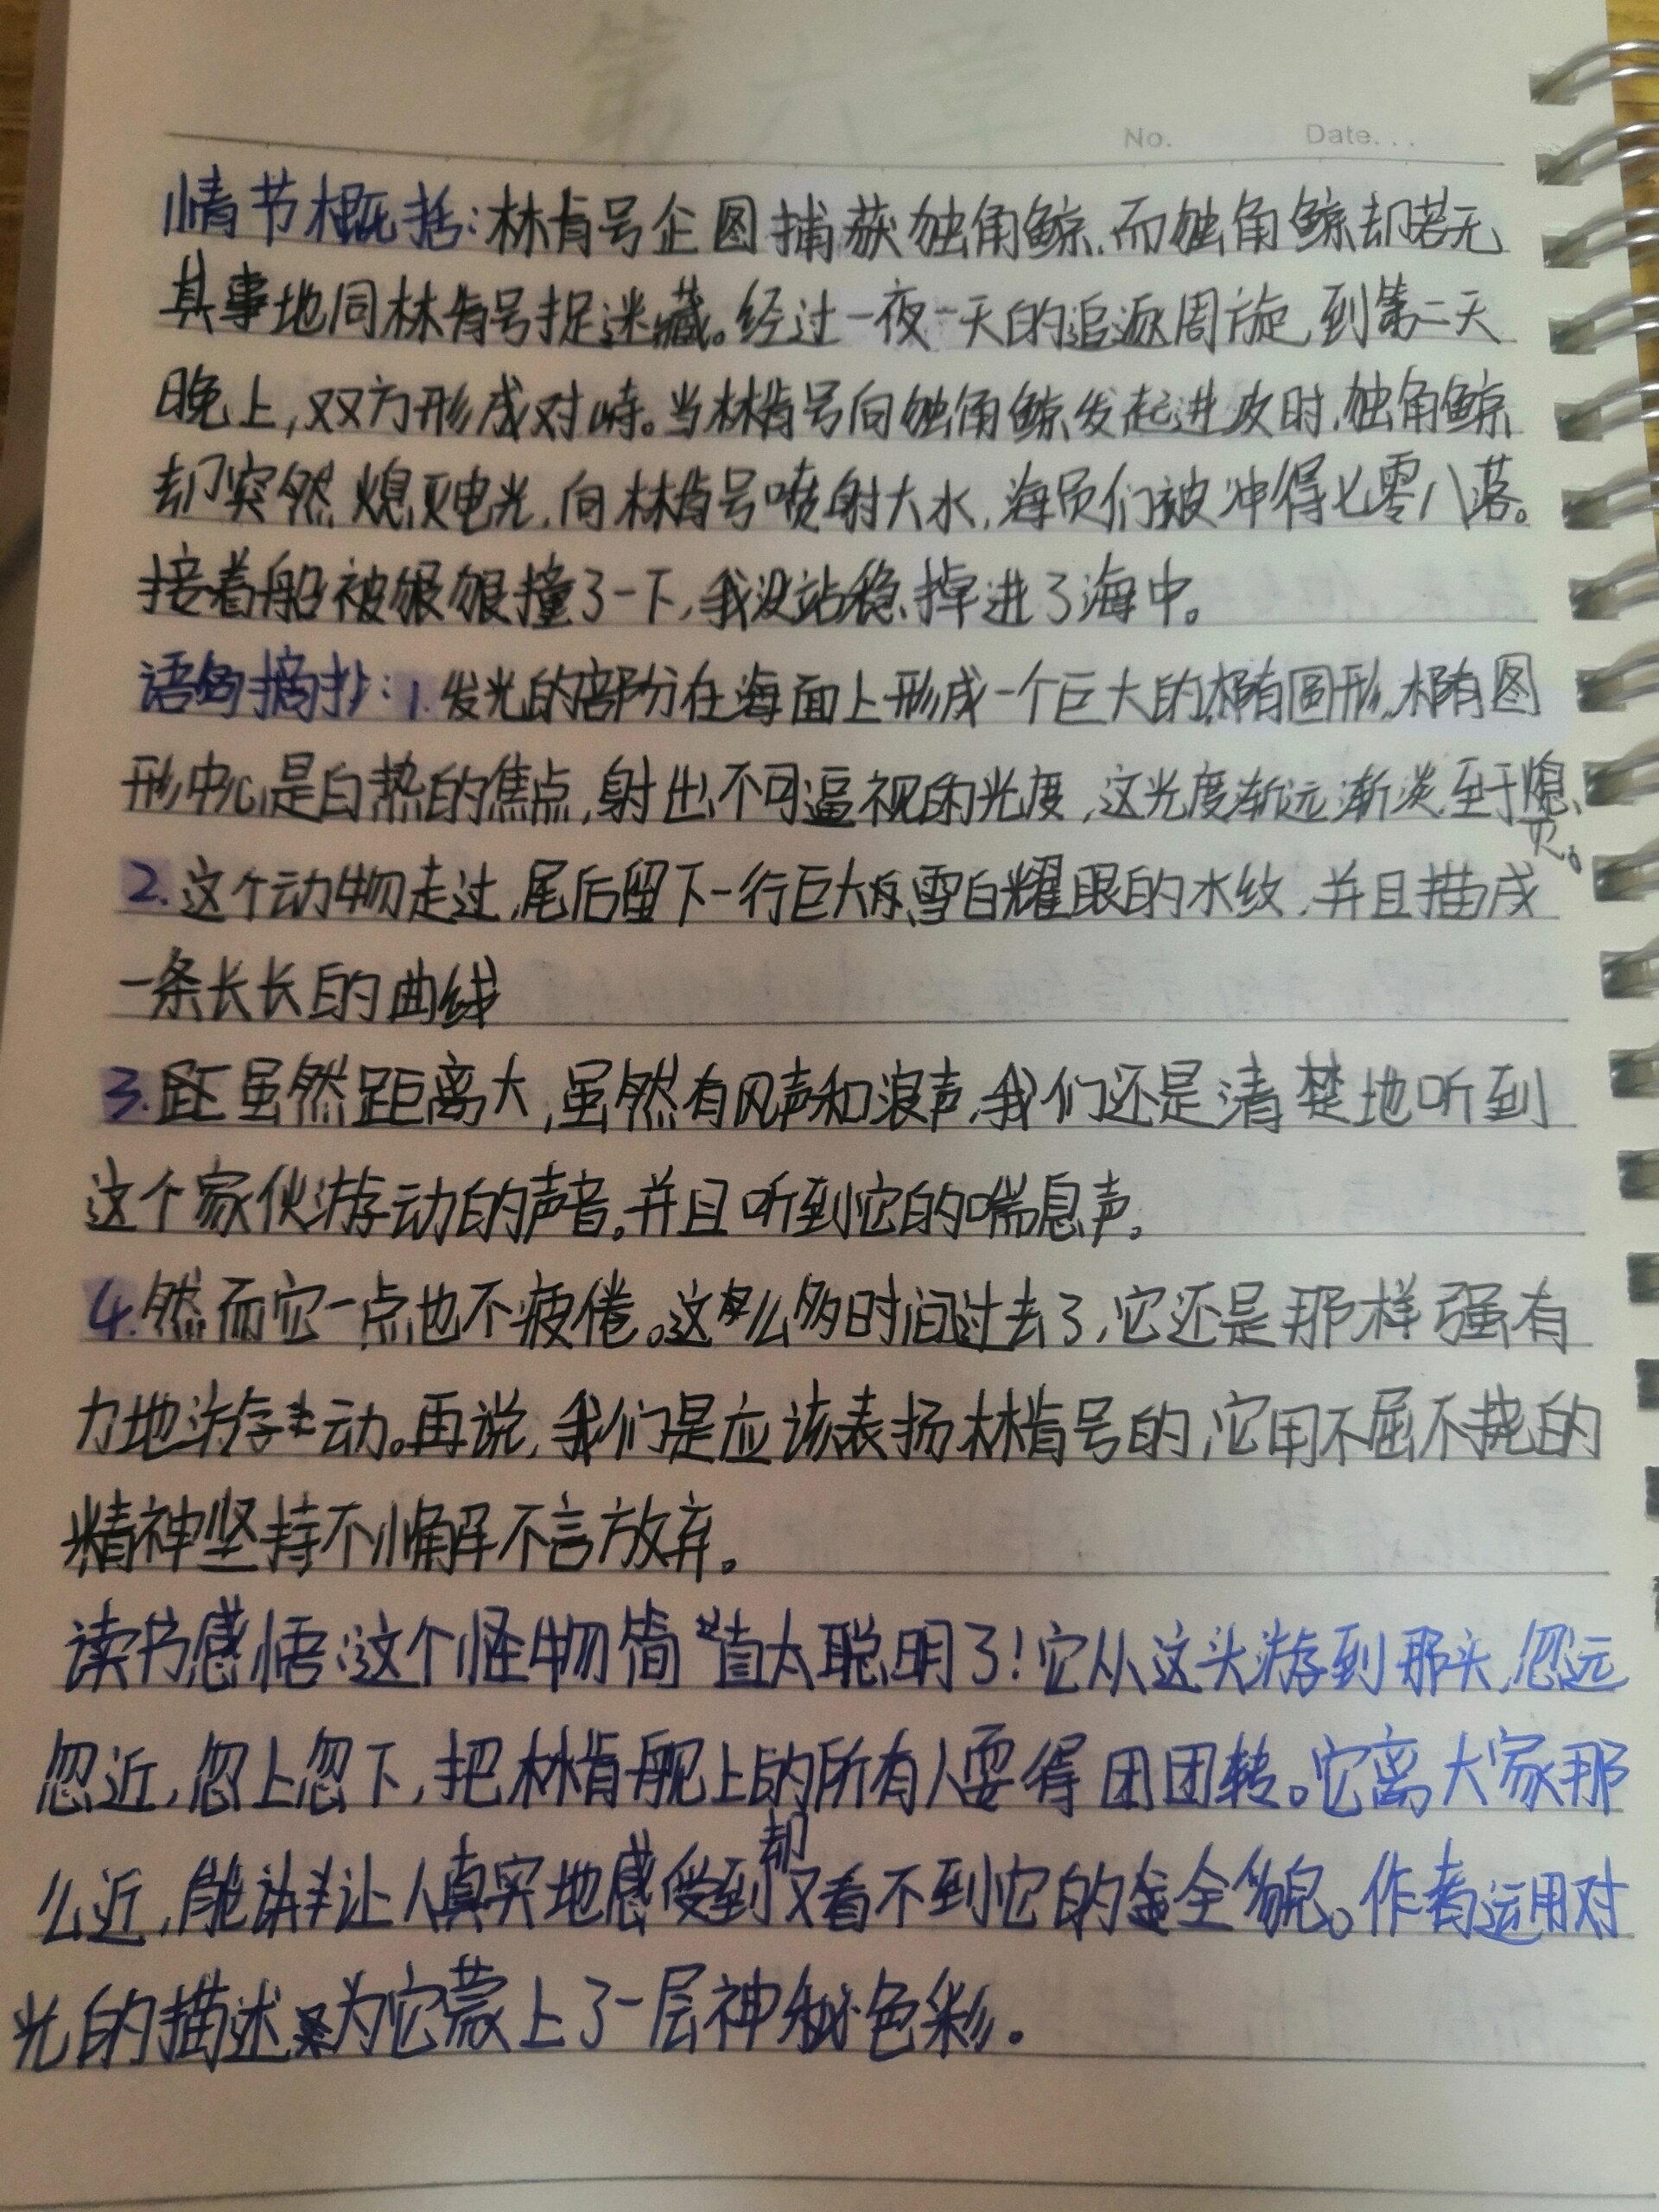 第六章
No. Date. . .
情节概括:林肯号企图捕获独角鲸,而独角鲸却若无
其事地同林肯号捉迷藏。经过一夜一天的追逐周旋,到第二天
晚上,双方形成对峙。当林肯号向独角鲸发起进攻时,独角鲸
却突然熄灭电光,向林肯号喷射大水,海员们被冲得七零八落。
接着船被狠狠撞了一下,我没站稳,掉进了海中。
语句摘抄:1.发光的部分在海面上形成一个巨大的椭圆形,椭圆
形中心是白热的焦点,射出不可逼视的光度,这光度渐远渐淡,至于熄
灭。
2.这个动物走过,尾后留下一行巨大的、雪白耀眼的水纹,并且描成
一条长长的曲线
3.虽然距离大,虽然有风声和浪声,我们还是清楚地听到
这个家伙游动的声音,并且听到它的喘息声。
4.然而它一点也不疲倦。这么多时间过去了,它还是那样强有
力地游动。再说,我们是应该表扬林肯号的,它用不屈不挠的
精神坚持不懈不言放弃。
读书感悟:这个怪物简直太聪明了!它从这头游到那头,忽远
忽近,忽上忽下,把林肯舰上的所有人耍得团团转。它离大家那
么近,能让人真实地感受到却又看不到它的全貌。作者运用对
光的描述,为它蒙上了一层神秘色彩。